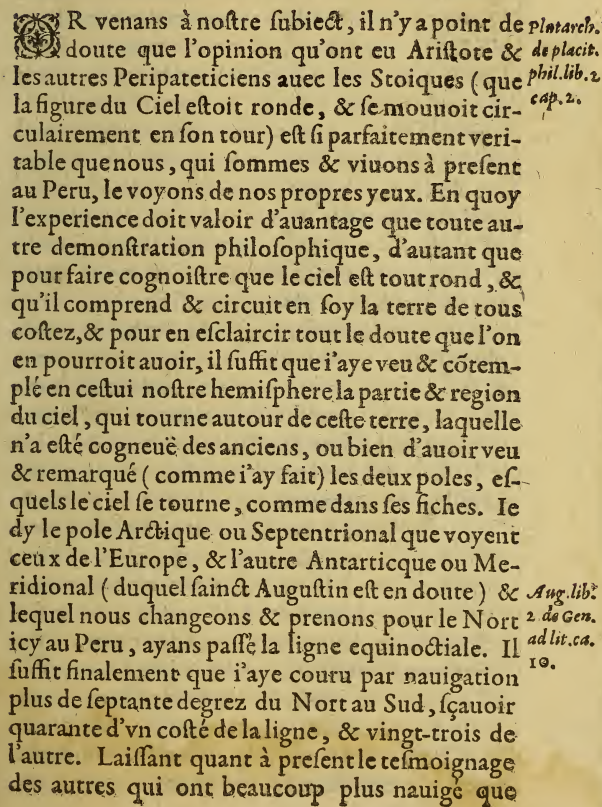 OR venans à noſtre ſubiect, il n'y a point de
doute que l'opinion qu'ont eu Ariſtote &
les autres Peripateticiens auec les Stoiques (que
la figure du Ciel eſtoit ronde, & ſe mouuoit cir-
culairement en ſon tour) eſt ſi parfaitement veri-
table que nous, qui ſommes & viuons à preſent
au Peru, le voyons de nos propres yeux. En quoy
l'experience doit valoir d'auantage que toute au-
tre demonſtration philoſophique, d'autant que
pour faire cognoiſtre que le ciel eſt tout rond, &
qu'il comprend & circuit en ſoy la terre de tous
coſtez, & pour en eſclaircir tout le doute que l'on
en pourroit auoir, il ſuffit que i'aye veu & cõtem-
plé en ceſtui noſtre hemiſphere la partie & region
du ciel, qui tourne autour de ceſte terre, laquelle
n'a eſté cogneuë des anciens, ou bien d'auoir veu
& remarqué (comme i'ay fait) les deux poles, eſ-
quels le ciel ſe tourne, comme dans ſes fiches. Ie
dy le pole Arctique ou Septentrional que voyent
ceux de l'Europe, & l'autre Antarticque ou Me-
ridional (duquel ſainct Auguſtin eſt en doute) &
lequel nous changeons & prenons pour le Nort
icy au Peru, ayans paſſé la ligne equinoctiale. Il
ſuffit finalement que i'aye couru par nauigation
plus de ſeptante degrez du Nort au Sud, ſçauoir
quarante d'vn coſté de la ligne, & vingt-trois de
l'autre. Laiſſant quant à preſent le teſmoignage
des autres qui ont beaucoup plus nauigé que
Plutarch.
de placit.
phil. lib. 2
cap. 2.
Aug. lib.
2 de Gen.
ad lit. ca.
10.